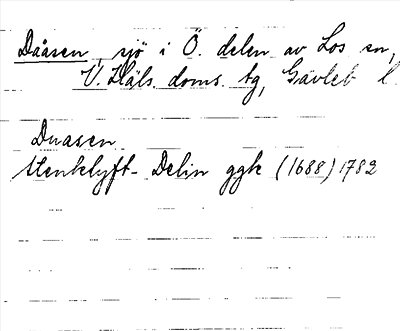 Dåasen, sjö i Ö. delen av Los sn,
V. Häls. doms. tg, Gävleb l.
Duasen
Stenklyft- Delin ggk (1688) 1782